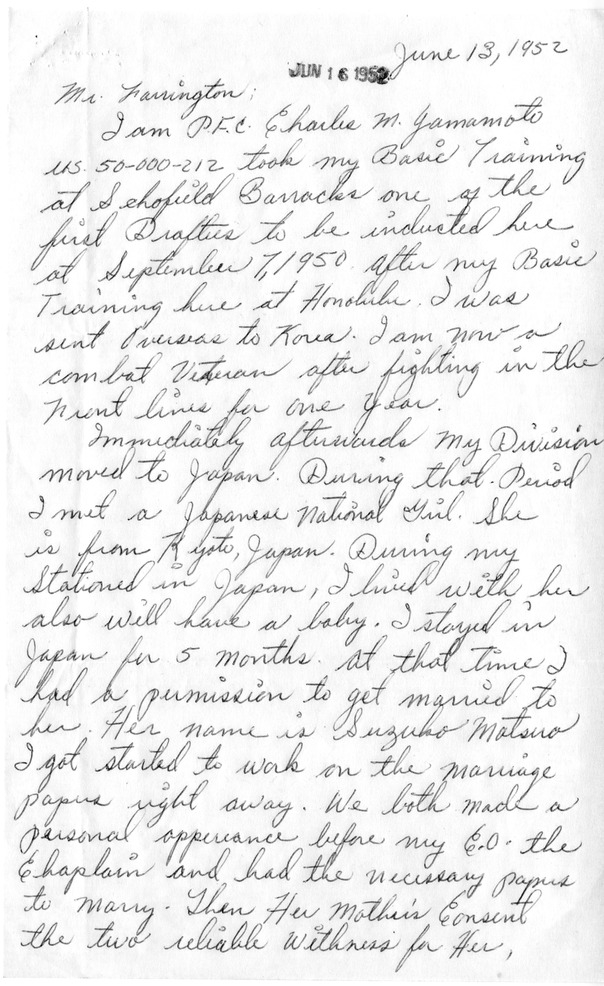 June 13, 1952
JUN 16 1952
Mr. Farrington;
I am P.F.C. Charles M. Yamamoto
US. 50-000-212 took my Basic Training
at Schofield Barracks one of the
first Drafties to be inducted here
at September 7, 1950. After my Basic
Training here at Honolulu. I was
sent Overseas to Korea. I am now a
combat Veteran after fighting in the
Front lines for one year.
Immediately afterwards my Division
moved to Japan. During that Period
I met a Japanese National Girl. She
is from Kyoto, Japan. During my
Stationed in Japan, I lived with her
also will have a baby. I stayed in
Japan for 5 months. At that time I
had a permission to get married to
her. Her name is Suzuko Matsuo
I got started to work on the marriage
papers right away. We both made a
personal apperiance before my C.O. the
Chaplain and had the necessary papers
to marry. Then Her Mother's Consent
the two reliable Withness for Her,